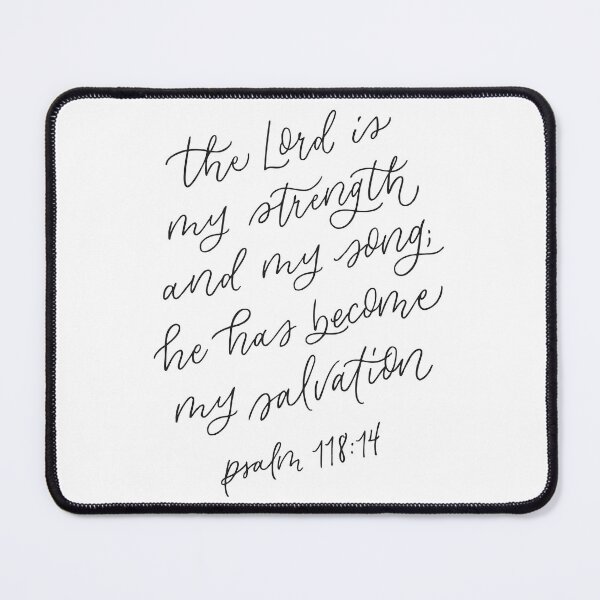 the Lord is
my strength
and my song;
he has become
my salvation
psalm 118:14